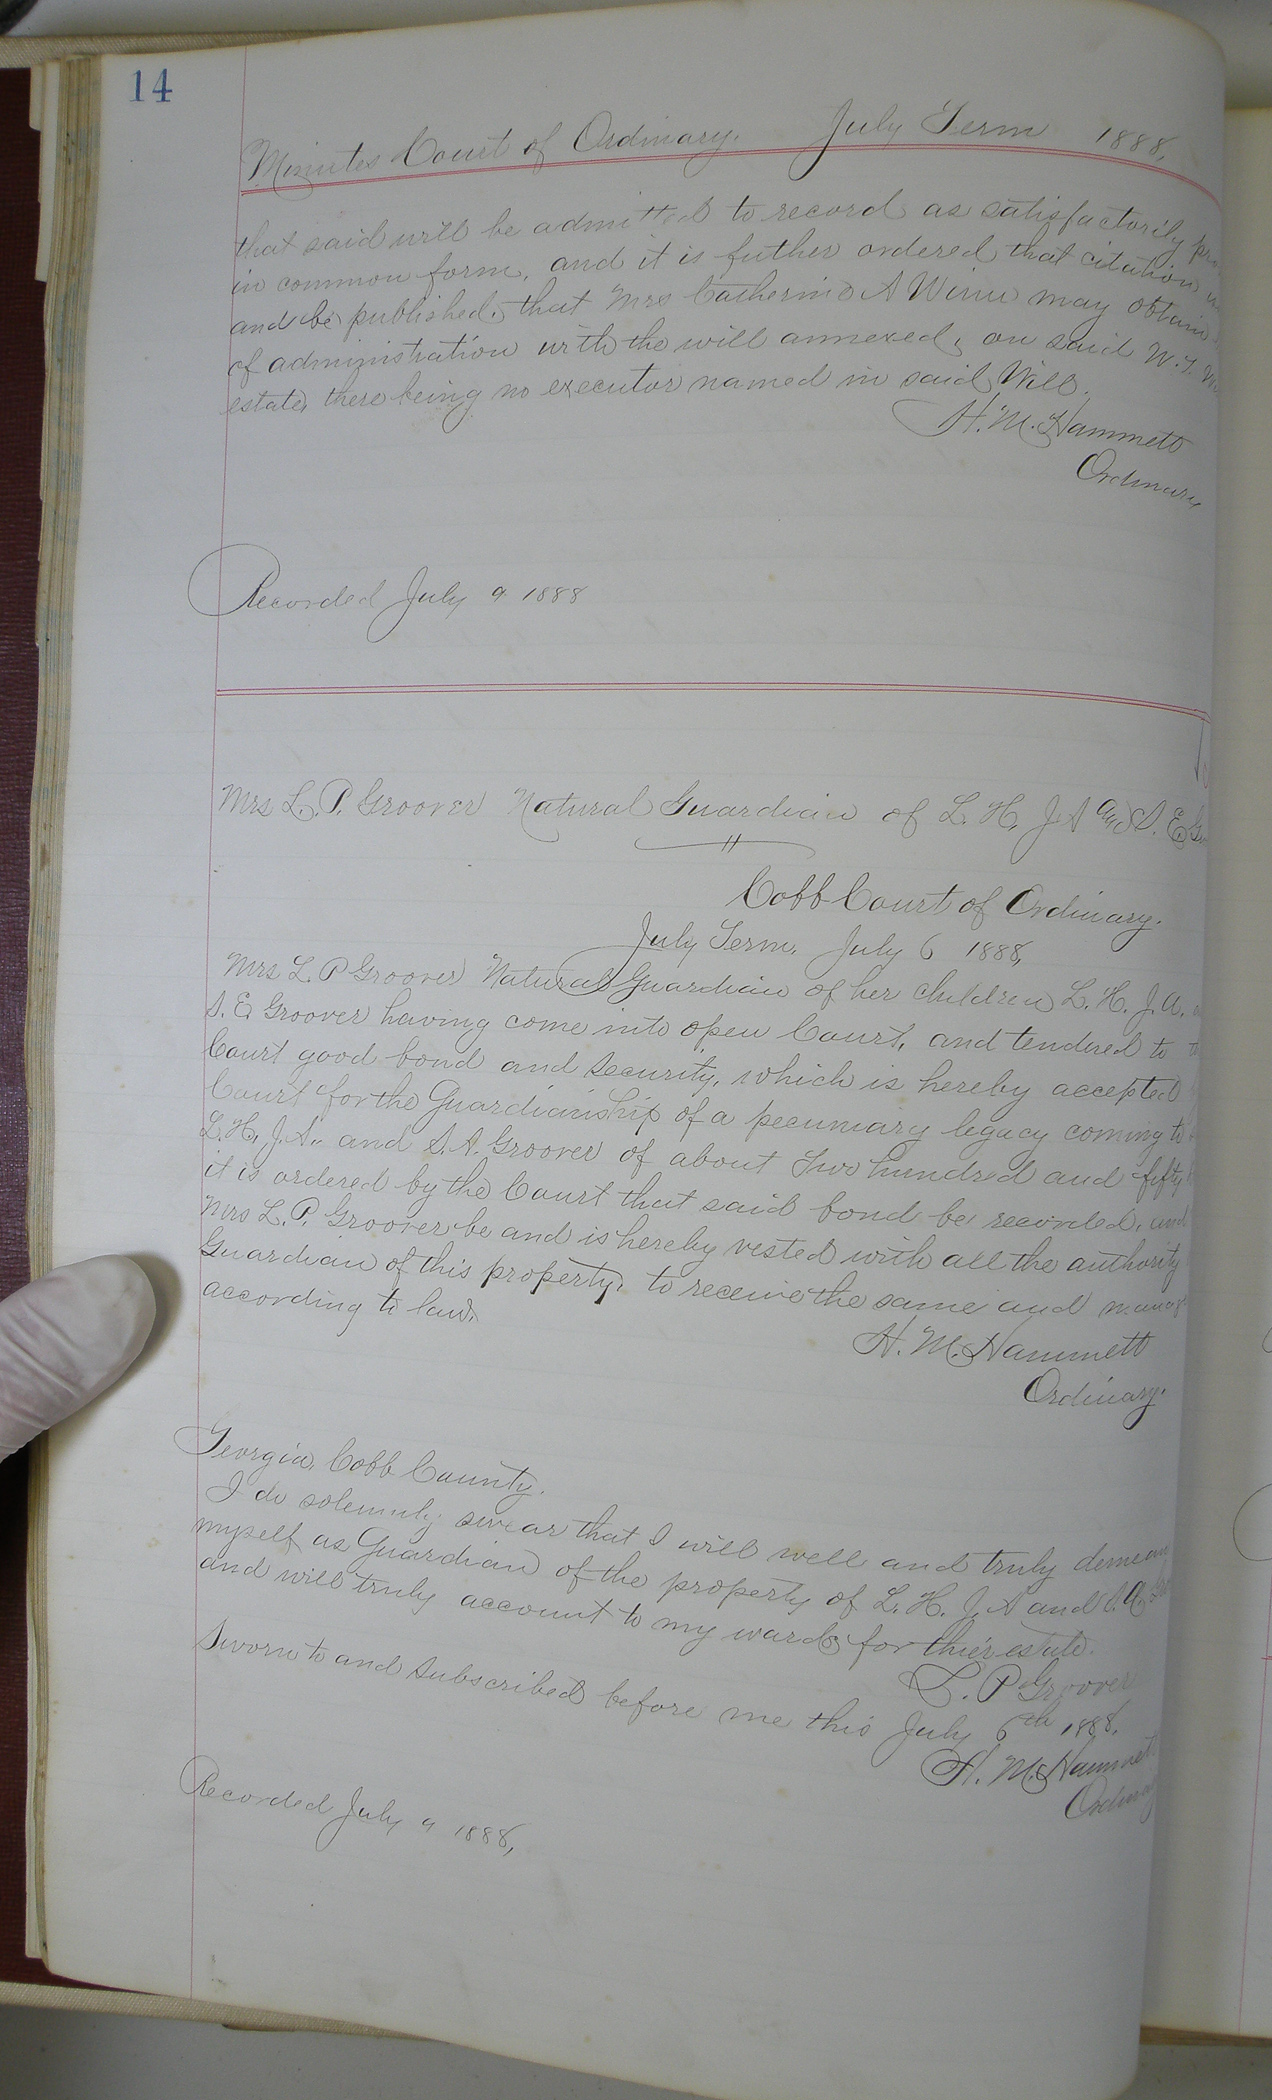 14
Minutes Court of Ordinary. July Term 1888,
that said will be admitted to record as satisfactorily
in common form, and it is futher ordered that citation
and be published, that Mrs Catherine A Winn may obtain
of administration with the will annexed, on said W. T.
estate, there being no executor named in said Will.
H. M. Hammett
Ordinary
Recorded July 9 1888
Mrs L. P. Groover Natural Guardian of L. H, J. A and S. E
Cobb Court of Ordinary.
July Term, July 6 1888,
Mrs L. P Groover Natural Guardian of her children L. H. J. A.
S. E. Groover having come into open Court, and tendered to
Court good bond and security, which is hereby accepted
Court for the Guardianship of a pecuniary legacy coming to
L. H, J. A. and S. A. Groover of about Two hundred and fifty
it is ordered by the Court that said bond be recorded, and
Mrs L. P. Groover be and is hereby vested with all the authority
Guardian of this property, to receive the same and
according to law.
H. M. Hammett
Ordinary.
Georgia, Cobb County.
I do solemnly swear that I will well and truly demean
myself as Guardian of the property of L. H. J. A and S. A.
and will truly account to my wards for thier estate.
L. P Groover
Sworn to and subscribed before me this July 6th 1888.
H. M. Hammett
Recorded July 9 1888,